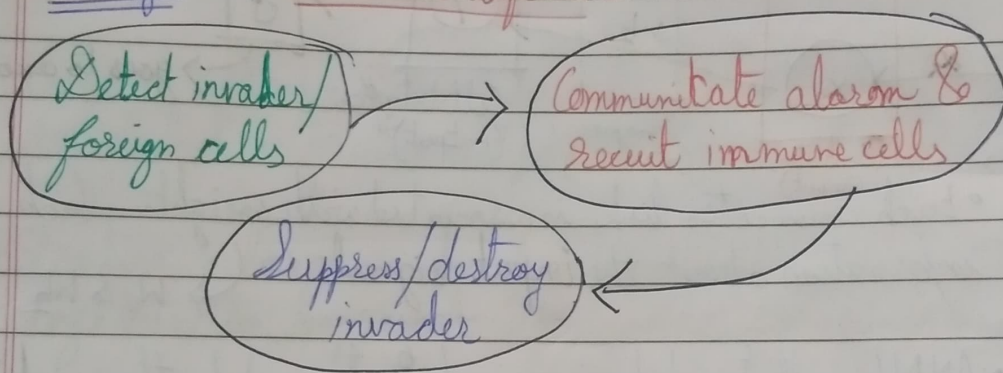 Detect invader/
foreign cells
Communicate alarm &
recuit immune cells
Suppress/destroy
invader